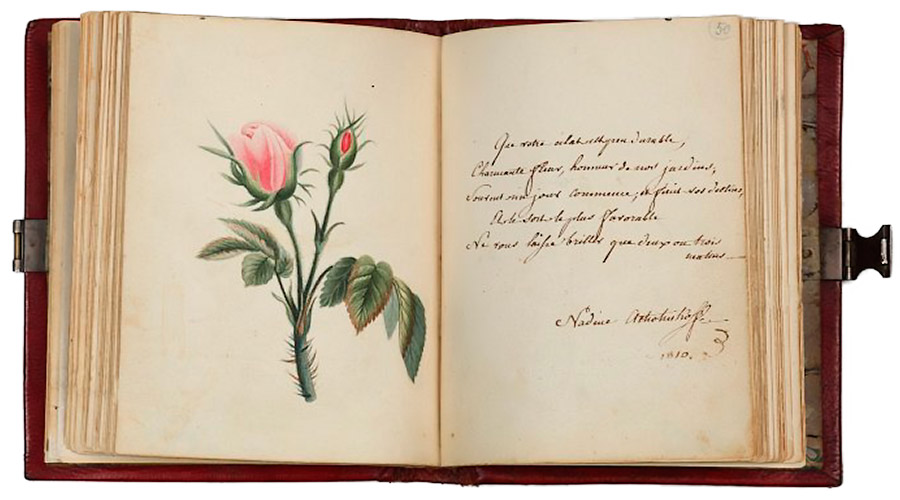 50
Que votre éclat est peu durable,
Charmante fleur, honneur de nos jardins,
Souvent un jour commence, et finit vos destins,
le plus favorable
Ne vous laisse briller que deux ou trois
matins
Nadine
1810.